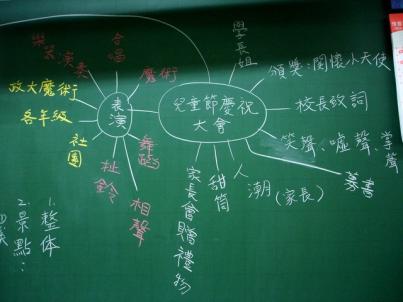 兒童節慶祝
大會
學長姐
頒獎:關懷小天使
校長致詞
笑聲、噓聲、掌聲
募書
人潮(家長)
甜筒
家長會贈禮物
表演
合唱
魔術
樂器演奏
政大魔術
各年級
社團
扯鈴
相聲
舞蹈
1.整体
2.景點: